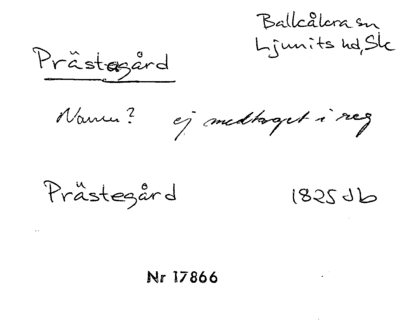 Balkåkra sn
Ljunits hd, Sk
Prästegård
Namn? ej medtaget i reg
Prästegård 1825 Jb
Nr 17866